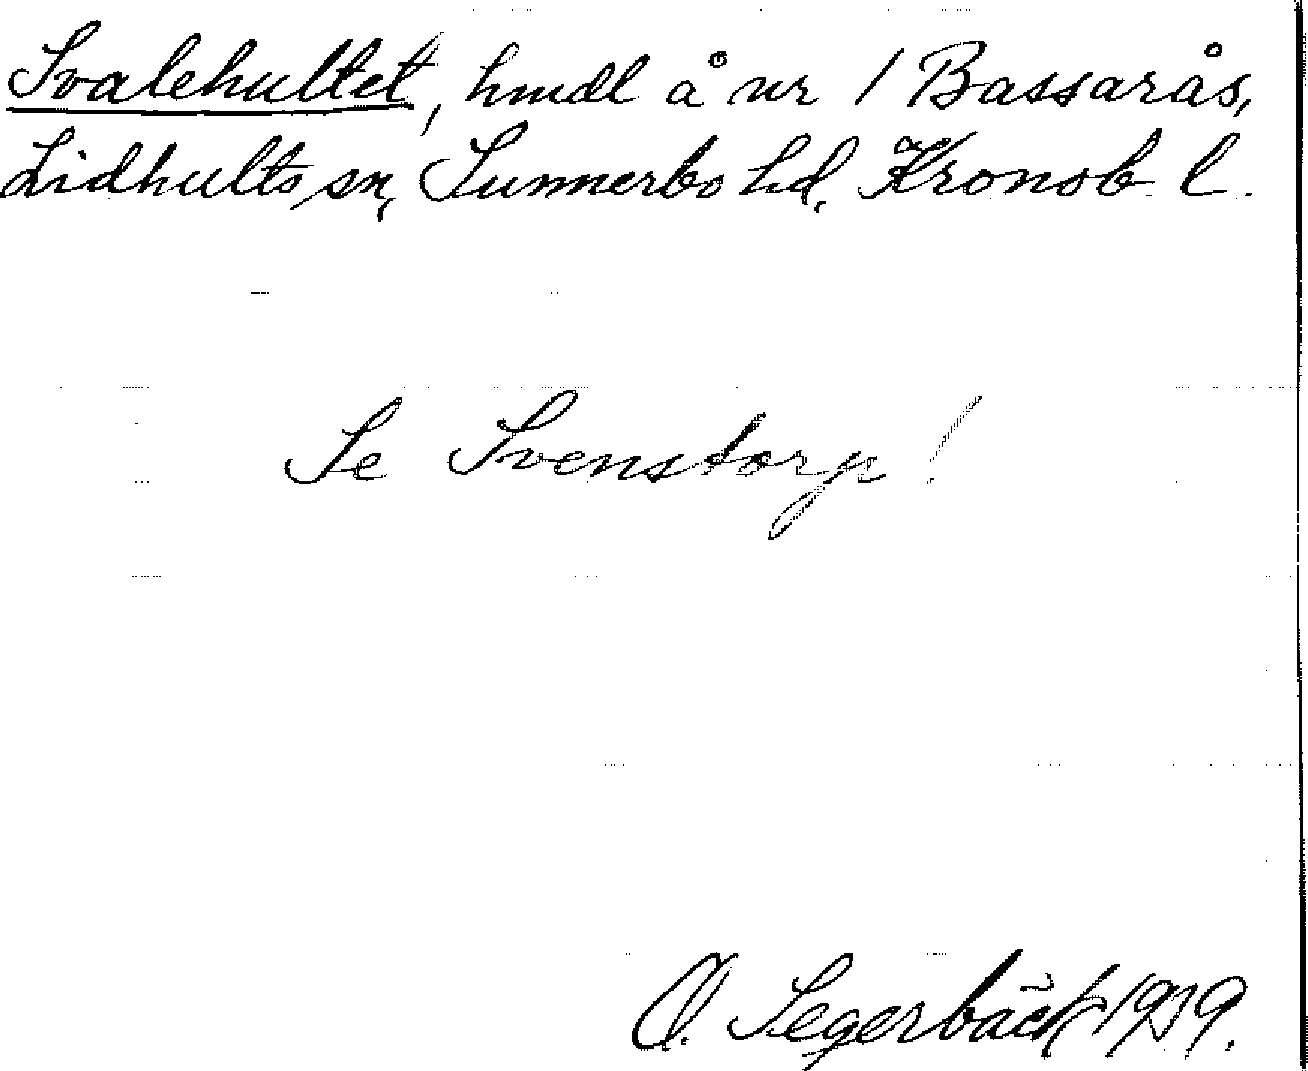 Svalehultet, hmdl å nr 1 Bassarås,
Lidhults sn, Sunnerbo hd, Kronob l.
Se Svenstorp!
O. Segerbäck 1919.